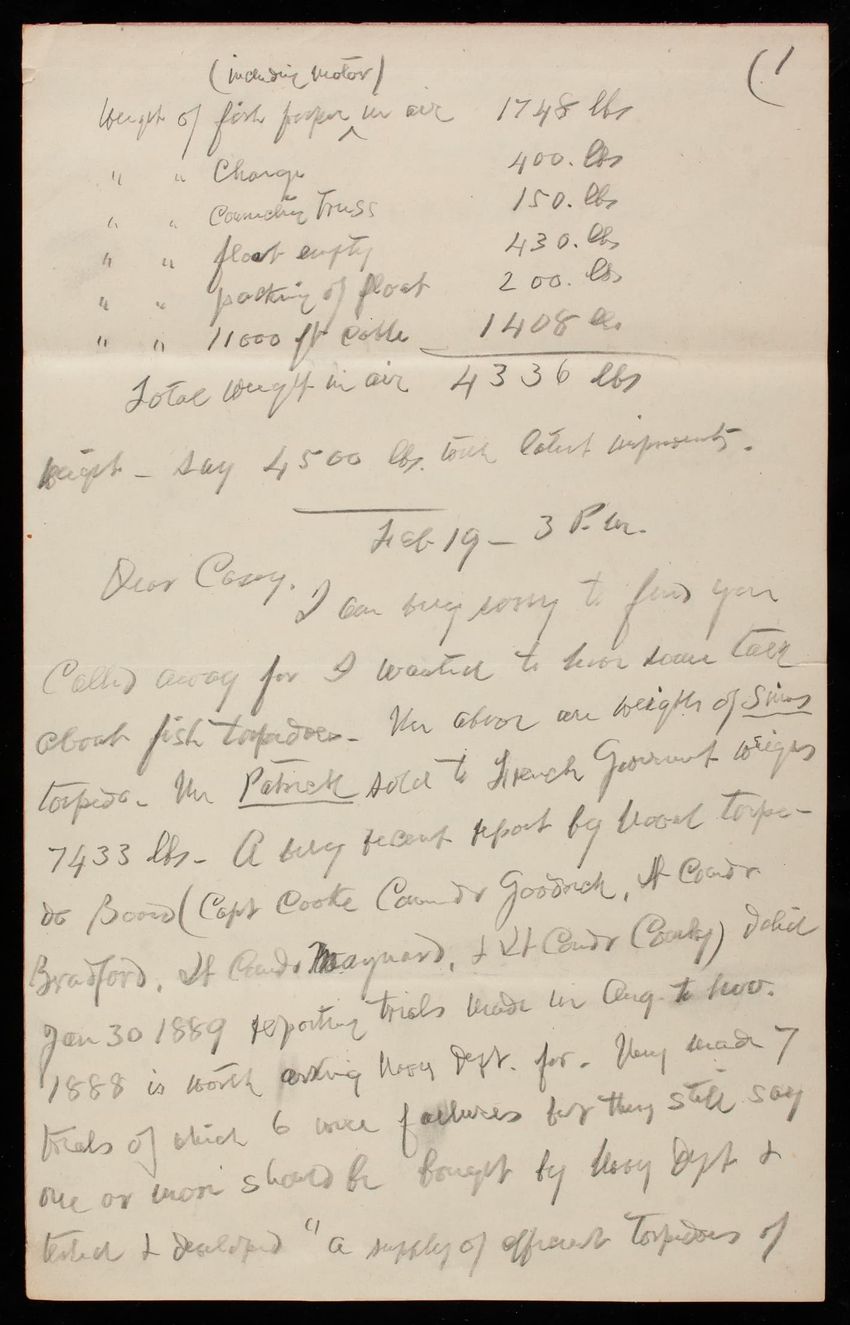 (1
(including motor)
Weight of fish proper ^ in air 1748 lbs
" " Charge 400. lbs
" " Connecting truss 150. lbs
" " float empty 430. lbs
" " packing of float 200. lbs
" " 11000 ft cable 1408 lbs
Total weight in air 4336 lbs
Weight - say 4500 lbs. with latest improvements.
Feb 19 - 3 P.m.
Dear Casey.
I am very sorry to find you
Called away for I wanted to have some talk
about fish torpedoes. The above are weights of Sims
torpedo. The Patrick sold to French Goverment weighs
7433 lbs. A very recent report by Naval torpe-
do Board (Capt Cooke Commdr Goodrich, Lt Comdr
Bradford, Lt Comdr Maynard, & Lt Comdr Cowly) dated
Jan 30 1889 reporting trials made in Aug. to Nov.
1888 is worth asking Navy Dept. for. They made 7
trials of which 6 were failures but they still say
one or more should be bought by Navy Dept &
tested & developed "a supply of efficient torpedoes of